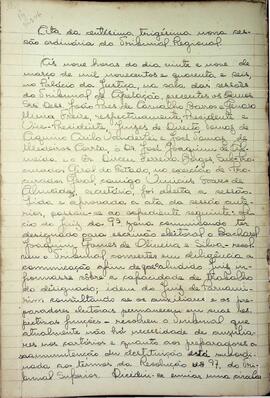 Acta da centésima trigésima nona ses-
são ordinária do Tribunal Regional
Às nove horas do dia vinte e nove de
março de mil novecentos e quarenta e seis,
no Palácio da Justiça, na sala das sessões
do Tribunal de Apelação, presentes os Senho-
res Des. João Dias de Carvalho Barros e
Freire, respectivamente, Presidente e
Vice-Presidente, Juizes de Direito Tomaz de
Aquino Cyrillo Wanderley e José
Medeiros Corrêa, o Dr. José Joaquim de
e o Dr. Dirceu Ferreira Borges, Sub-Pro-
curador Geral do Estado, no exercício de Pro-
curador Geral, comigo, Soares de
Almeida, secretário, foi aberta a sessão.
Lida e aprovada a ata da sessão ante-
rior, passou-se ao expediente seguinte: ofí-
cio do Juiz da 79ª zona comunicando ter
designado para escrivão eleitoral o Bacharel
Joaquim Gomes de Oliveira e Silva - resol-
veu o Tribunal converter em diligência a
comunicação afim de que aquele Juiz
informasse sobre a capacidade de trabalho
do designado; idem do Juiz de
consultando se os auxiliares e os pre-
paradores eleitorais permanecem em suas res-
pectivas funções - resolveu o Tribunal que
atualmente não há necessidade de auxilia-
res nos cartórios e quanto aos preparadores a
sua manutenção ou destituição está
nos termos da Resolução nº 97, do Tri-
bunal Superior. Decidiu-se enviar uma circular